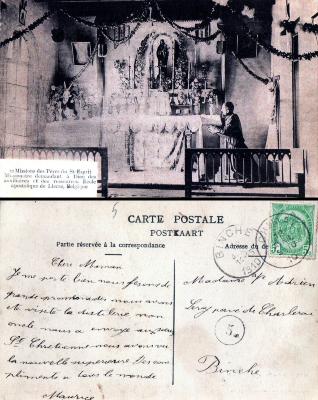 Missions des Pères du St-Esprit
Missionnaire demandant à Dieu des
auxiliaires et des ressources. Ecole
apostolique de Lierre, Belgique
CARTE POSTALE
POSTKAART
Partie réservée à la correspondance
Adresse du de
BINCHE
1910
5
Cher Maman
Je me porte bien nous ferons de
grande promenades nous avons
et visité la distilerie mon
oncle nous a envoyé
St Chretienne nous avons vu
la nouvelle superieure Des com
pliments a tous le monde
Maurice
Madame Adrien
parc de Charleroi
Binche
5.